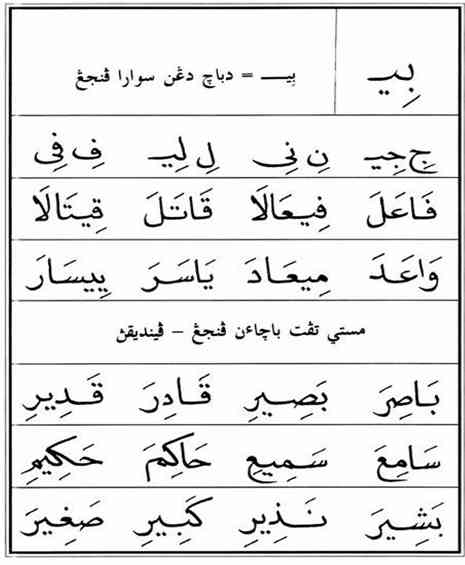 بِيـ
بيـــ = دباچ دڠن سوارا ڤنجڠ
جِ جِيـ نِ نِي لِ لِيـ فِ فِي
فَاعَلَ فِيعَالَا قَاتَلَ قِيتَالَا
وَاعَدَ مِيعَادَ يَاسَرَ يِيسَارَ
مستي تڤت باچاءن ڤنجڠ – ڤينديقڽ
بَاصِرَ بَصِيرِ قَادِرَ قَدِيرِ
سَامِعَ سَمِيعِ حَاكِمَ حَكِيمِ
بَشِيرَ نَذِيرِ كَبِيرِ صَغِيرَ